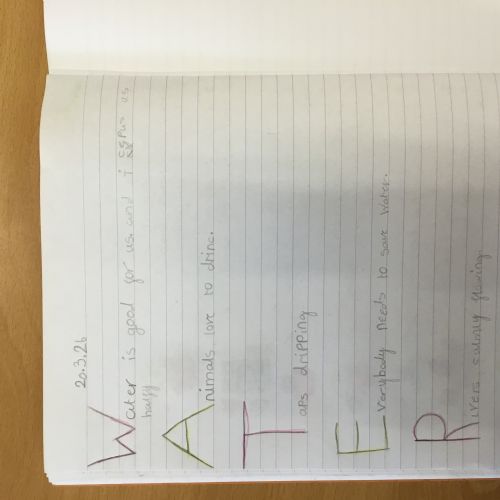 20.3.26
Water is good for us. and i as
happy
Animals love to drinc.
Taps dripping
Everybody needs to save water.
Rivers calmly flowing.